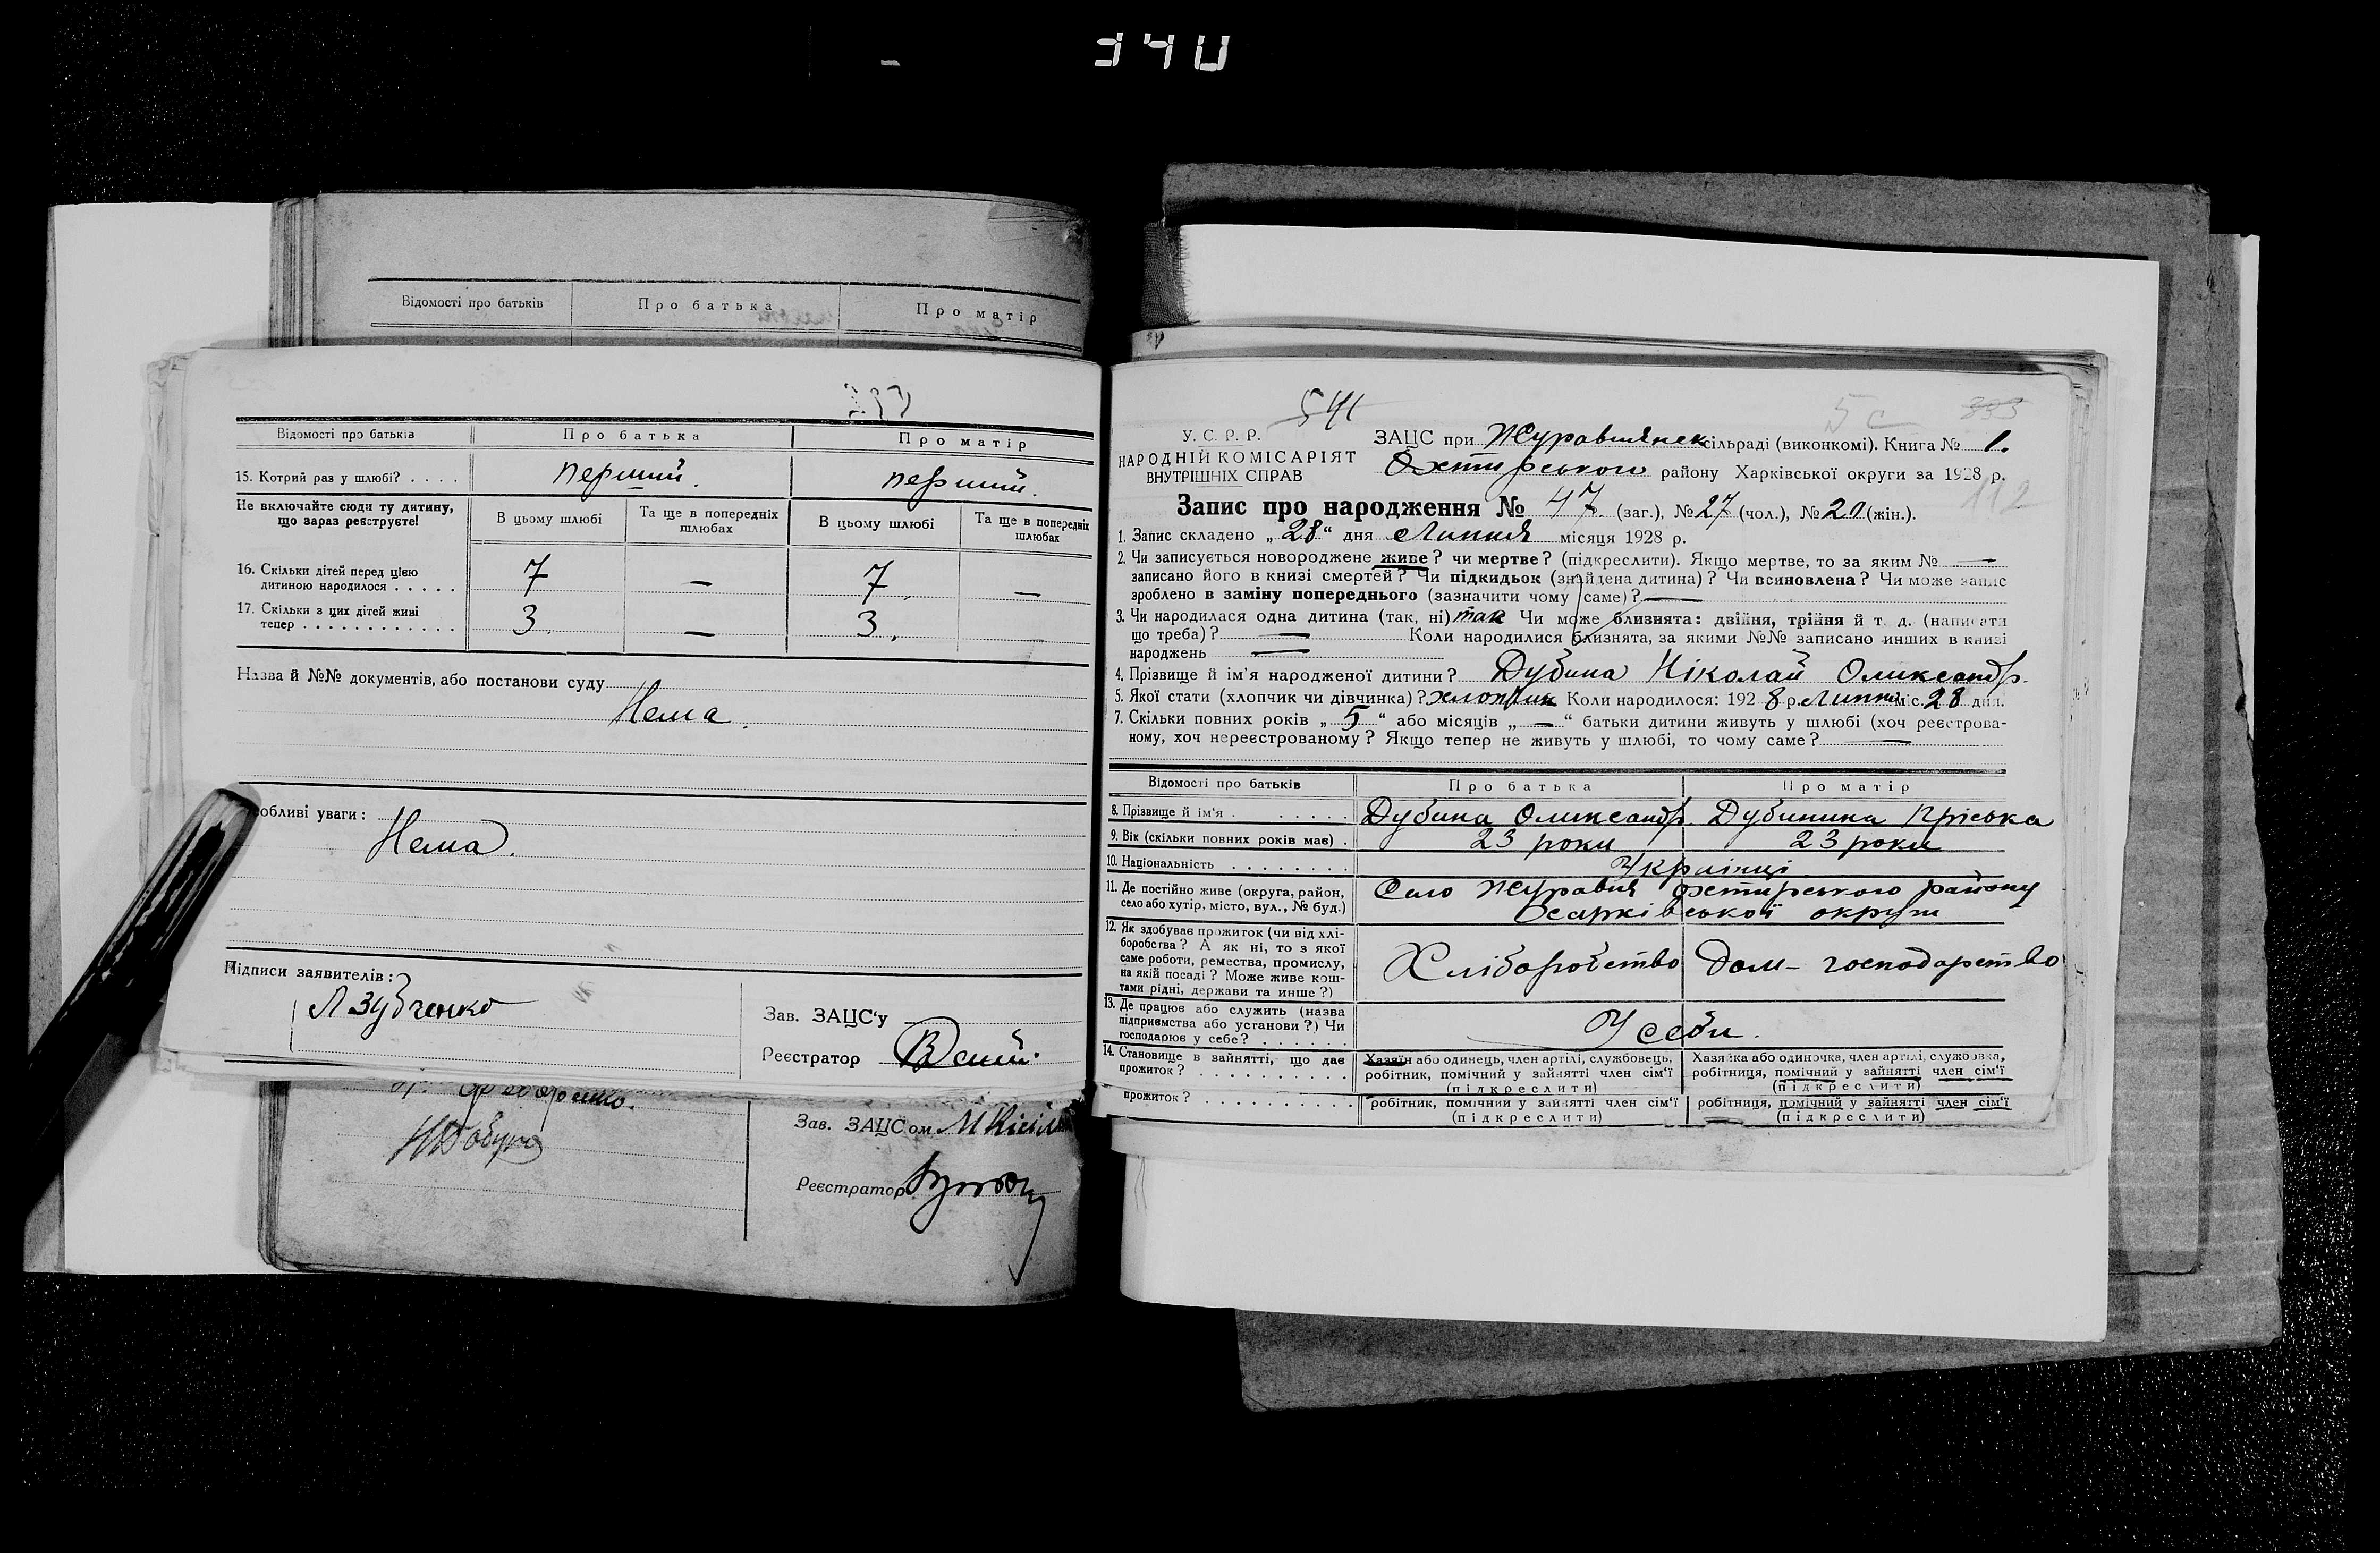 340
Відомості про батьків Про батька Про матір
Відомості про батьків Про батька Про матір
15. Котрий раз у шлюбі? . . . . перший. перший.
Не включайте сюди ту дитину,
що зараз реєструєте!
В цьому шлюбі Та ще в попередніх шлюбах В цьому шлюбі Та ще в попередніх шлюбах
16. Скільки дітей перед цією
дитиною народилося . . . . . 7 — 7 —
17. Скільки з цих дітей живі
тепер . . . . . . . . . . . . 3. — 3.
Назва й №№ документів, або постанови суду
Нема.
собливі уваги:
Нема.
Підписи заявителів:
Л Зубченко
Зав. ЗАЦС'у
Реєстратор
Зав. ЗАЦСом
Реєстратор
541 5 с 333
У. С. Р. Р.
НАРОДНІЙ КОМІСАРІЯТ
ВНУТРІШНІХ СПРАВ
ЗАЦС при Журавлянск сільраді (виконкомі). Книга № 1.
Охтирського району Харківської округи за 1928 р.
112
Запис про народження № 47 (заг.), № 27 (чол.), № 20 (жін.).
1. Запис складено „28“ дня Липня місяця 1928 р.
2. Чи записується новороджене живе? чи мертве? (підкреслити). Якщо мертве, то за яким № —
записано його в книзі смертей? Чи підкидьок (знайдена дитина)? Чи всиновлена? Чи може запис
зроблено в заміну попереднього (зазначити чому саме)? —
3. Чи народилася одна дитина (так, ні) так Чи може близнята: двійня, трійня й т. д. (написати
що треба)? — Коли народилися близнята, за якими №№ записано инших в книзі
народжень —
4. Прізвище й ім'я народженої дитини? Дубина Ніколай Олександр.
5. Якої стати (хлопчик чи дівчинка)? хлопчик Коли народилося: 1928 р. Липня міс. 28 дня.
7. Скільки повних років „5“ або місяців „—“ батьки дитини живуть у шлюбі (хоч реєстрова-
ному, хоч нереєстрованому? Якщо тепер не живуть у шлюбі, то чому саме? —
Відомості про батьків Про батька Про матір
8. Прізвище й ім'я . . . . . . Дубина Олександр Дубинина Пріська
9. Вік (скільки повних років має) . 23 роки 23 роки
10. Національність . . . . . . . . Українці
11. Де постійно живе (округа, район,
село або хутір, місто, вул., № буд.)
Село Журавня Охтирського району
Харківської округи
12. Як здобуває прожиток (чи від хлі-
боробства? А як ні, то з якої
саме роботи, ремества, промислу,
на якій посаді? Може живе кош-
тами рідні, держави та инше?)
Хліборобство Дом- господарство
13. Де працює або служить (назва
підприємства або установи?) Чи
господарює у себе? . . . . . .
У себи.
14. Становище в зайнятті, що дає
прожиток? . . . . . . . . . .
Хазяїн або одинець, член артілі, службовець,
робітник, помічний у зайнятті член сім'ї
(підкреслити)
Хазяйка або одиночка, член артілі, службовка,
робітниця, помічний у зайнятті член сім'ї
(підкреслити)
прожиток? . . . . . . . . . . .
робітник, помічний у зайнятті член сім'ї
(підкреслити)
робітниця, помічний у зайнятті член сім'ї
(підкреслити)